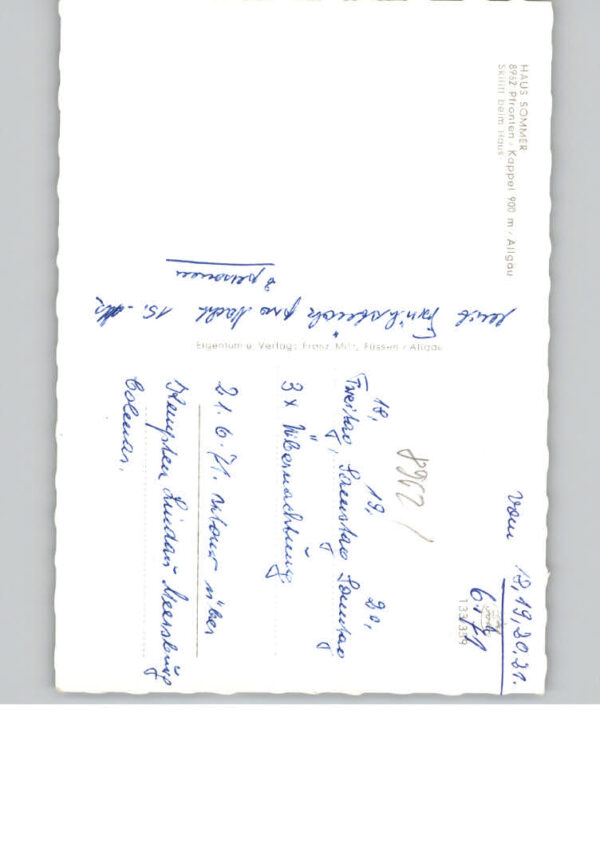 HAUS SOMMER
8962 Pfronten - Kappel 900 m / Allgäu
Skilift beim Haus
mit Frühstück pro Nacht 15.-
2 personen
Eigentum u. Verlag: Franz Milz, Füssen / Allgäu
vom 18, 19, 20, 21.
6. 71
133/359
8962
18, 19. 20,
Freitag, Samstag Sonntag
3 x Übernachtung,
21.6.71. retour über
Kempten Lindau Meersburg
Colmar.